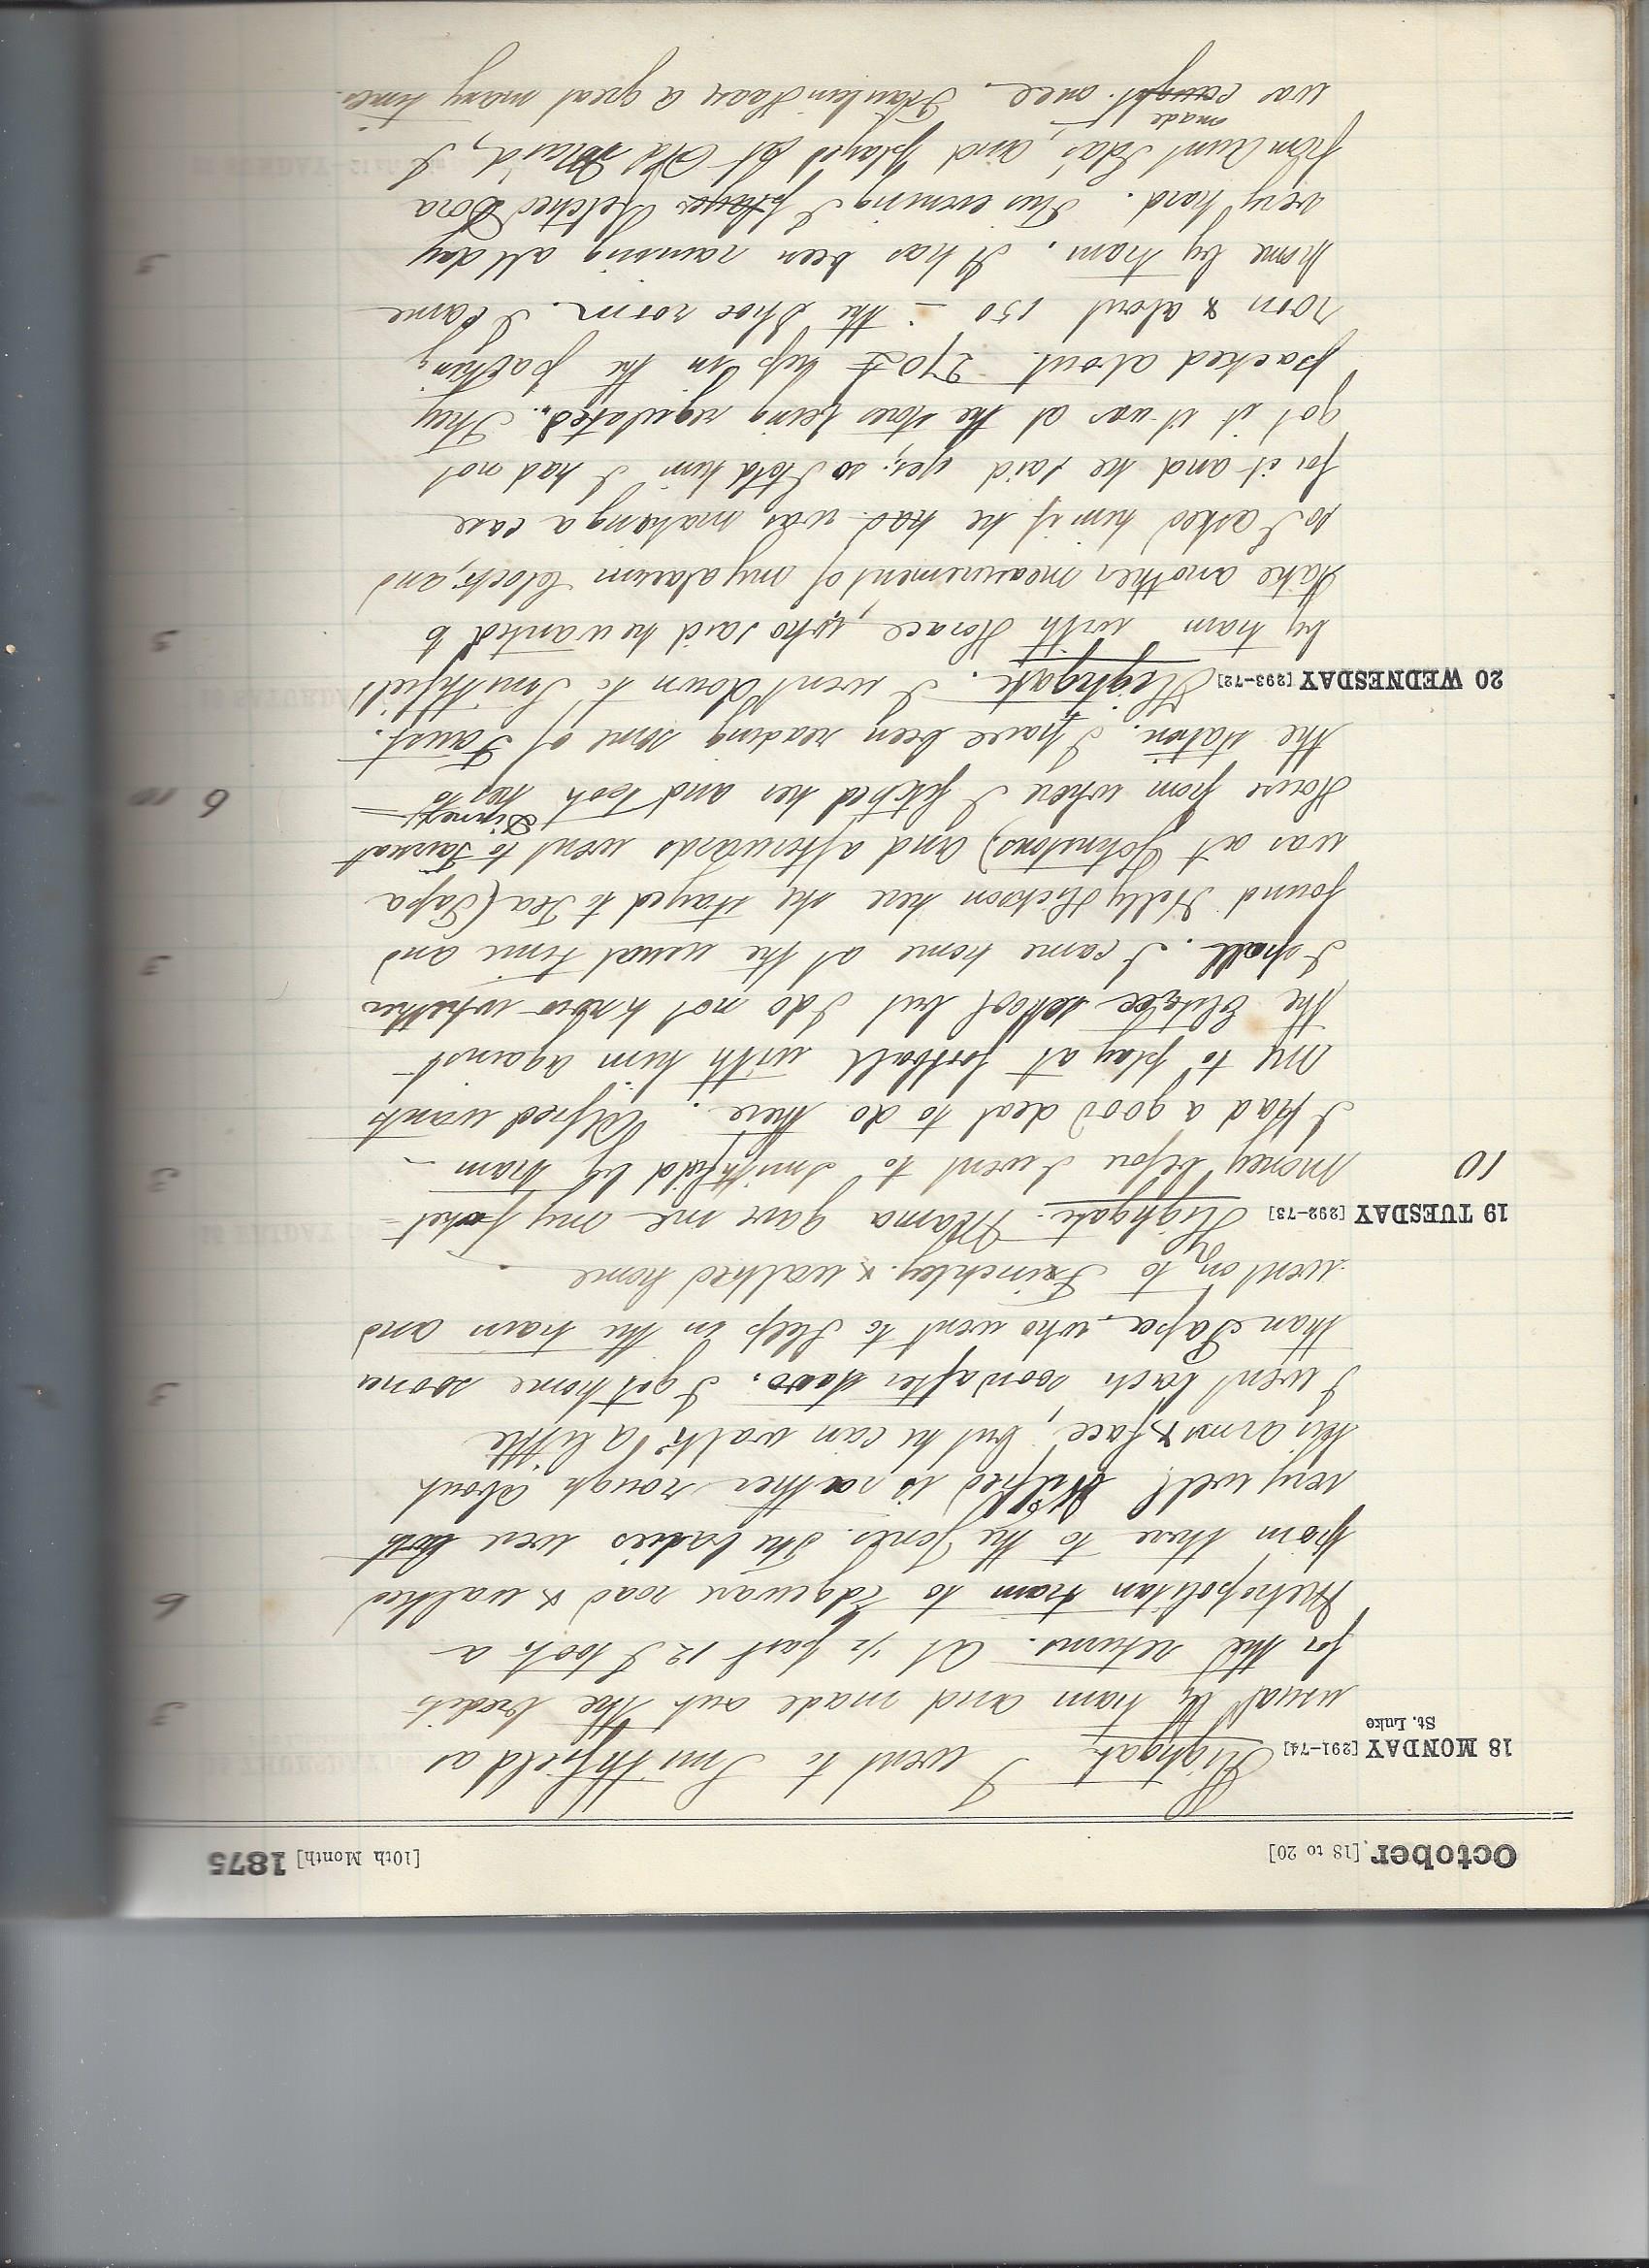 October [18 to 20] [10th Month] 1875
18 MONDAY [291-74] Highgate I went to Smithfield as
St. Luke
usual by tram and made out the credits 3
for the returns. At ½ past 12 I took a
Metropolitan train to Edgware road & walked 6
from there to the Jones. The babies were both
very well. Wilfred is rather rough about
his arms & face, but he can walk a little
I went back soon after two. I got home sooner 3
than Papa who went to sleep in the train and
went on to Finchley & walked home
19 TUESDAY [292-73] Highgate. Mama gave me my pocket=
10 money before I went to Smithfield by tram - 3
I had a good deal to do there. Alfred wants
me to play at football with him against
the school but I do not know whether
I shall. I came home at the usual time and 3
found Nelly Hickson here she stayed to Tea (Papa
was at Johnstons) and afterwards went to Fairseat
to Dinner
House from where I fetched her and took her to 6 10
the station. I have been reading some of Faust.
20 WEDNESDAY [293-72] Highgate. I went down to Smithfield
by tram with Horace, who said he wanted to 3
take another measurement of my alarum clock, and
so I asked him if he had was making a case
for it and he said yes; so I told him I had not
got it it was at the stores being regulated. They
packed about 270 £ hep in the packing
room & about 150 - the Shoe room. I came
home by tram. It has been raining all day 3
very hard. This evening I fetched Dora
from Aunt Ida's, and played at Old Maid, I
made
was caught once. Fraulein Haas a great many times.